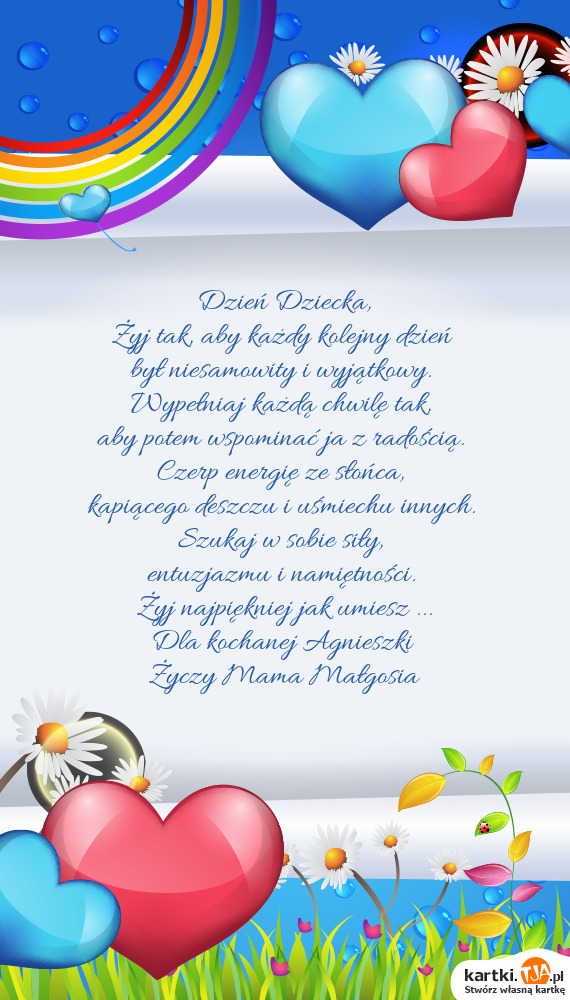 Dzień Dziecka,
Żyj tak, aby każdy kolejny dzień
był niesamowity i wyjątkowy.
Wypełniaj każdą chwilę tak,
aby potem wspominać ja z radością.
Czerp energię ze słońca,
kapiącego deszczu i uśmiechu innych.
Szukaj w sobie siły,
entuzjazmu i namiętności.
Żyj najpiękniej jak umiesz ...
Dla kochanej Agnieszki
Życzy Mama Małgosia
kartki.TJA.pl
Stwórz własną kartkę